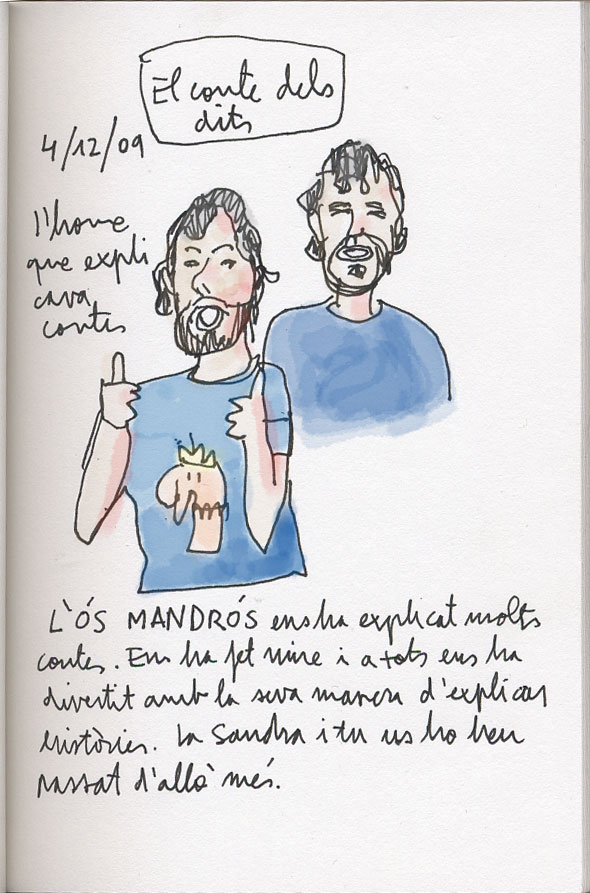 El conte dels
dits
4/12/09
l'home
que expli
cava
contes
L'ÓS MANDRÓS ens ha explicat molts
contes. Ens ha fet riure i a tots ens ha
divertit amb la seva manera d'explicar
històries. La Sandra i tu us ho heu
passat d'allò més.